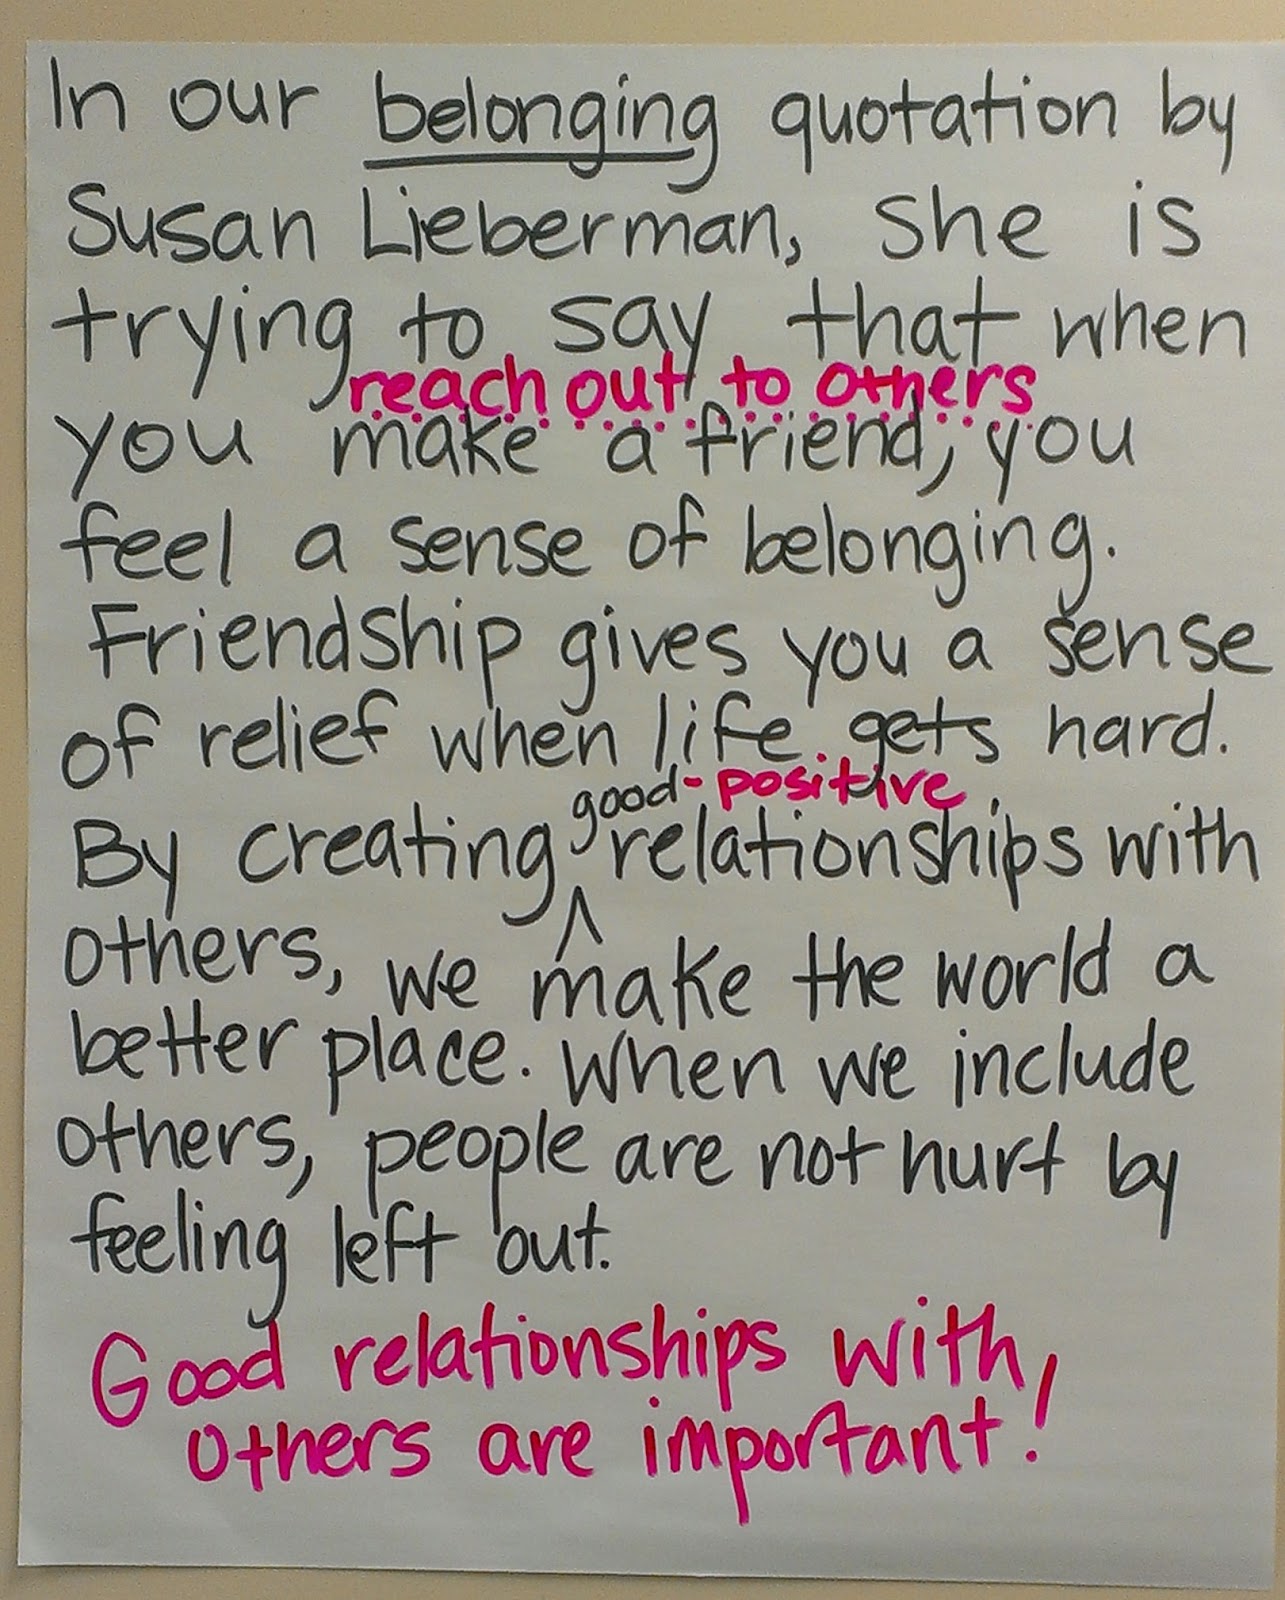 In our belonging quotation by
Susan Lieberman, she is
trying to say that when
reach out to others
you make a friend, you
feel a sense of belonging.
Friendship gives you a sense
of relief when life gets hard.
good-positive
By creating relationships with
others, we make the world a
better place. When we include
others, people are not hurt by
feeling left out.
Good relationships with
others are important!